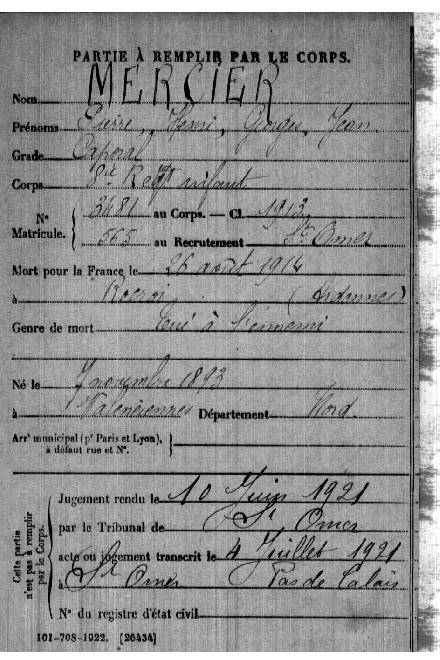 PARTIE À REMPLIR PAR LE CORPS.
Nom MERCIER
Prénoms Pierre, Henri, Georges, Jean.
Grade Caporal
Corps 8e Regt infant
N° Matricule. { 3481 au Corps. — Cl. 1913
565 au Recrutement St Omer
Mort pour la France le 26 août 1914
à Rocroi (Ardennes)
Genre de mort Tué à l'ennemi
Né le 7 novembre 1893
à Valenciennes Département Nord.
Arrt municipal (pr Paris et Lyon), à défaut rue et N°. }
Cette partie n'est pas à remplir par le Corps.
Jugement rendu le 10 Juin 1921
par le Tribunal de St Omer
acte ou jugement transcrit le 4 Juillet 1921
à St Omer Pas de Calais
N° du registre d'état civil
101-708-1922. [26434]